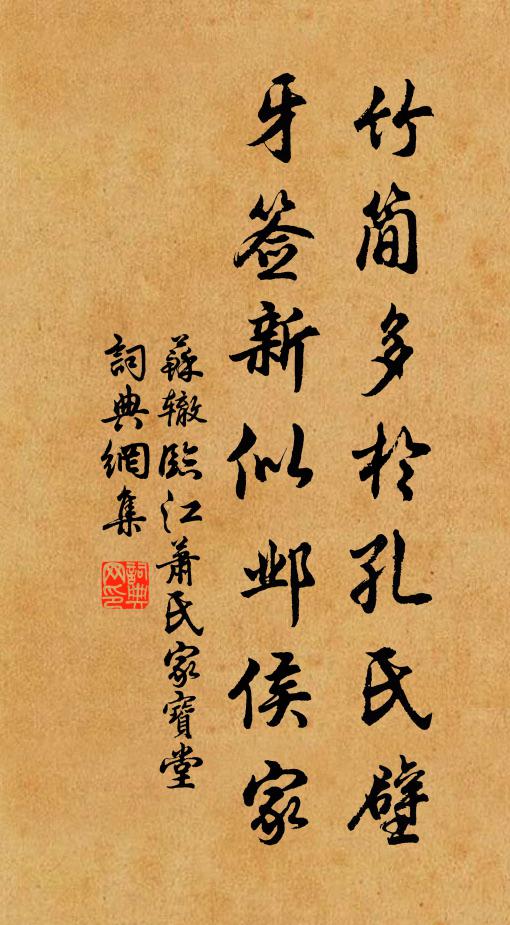 竹简多於孔氏壁
牙签新似邺侯家
蘇辙臨江萧氏家寶堂
詞典網集
詞典網印